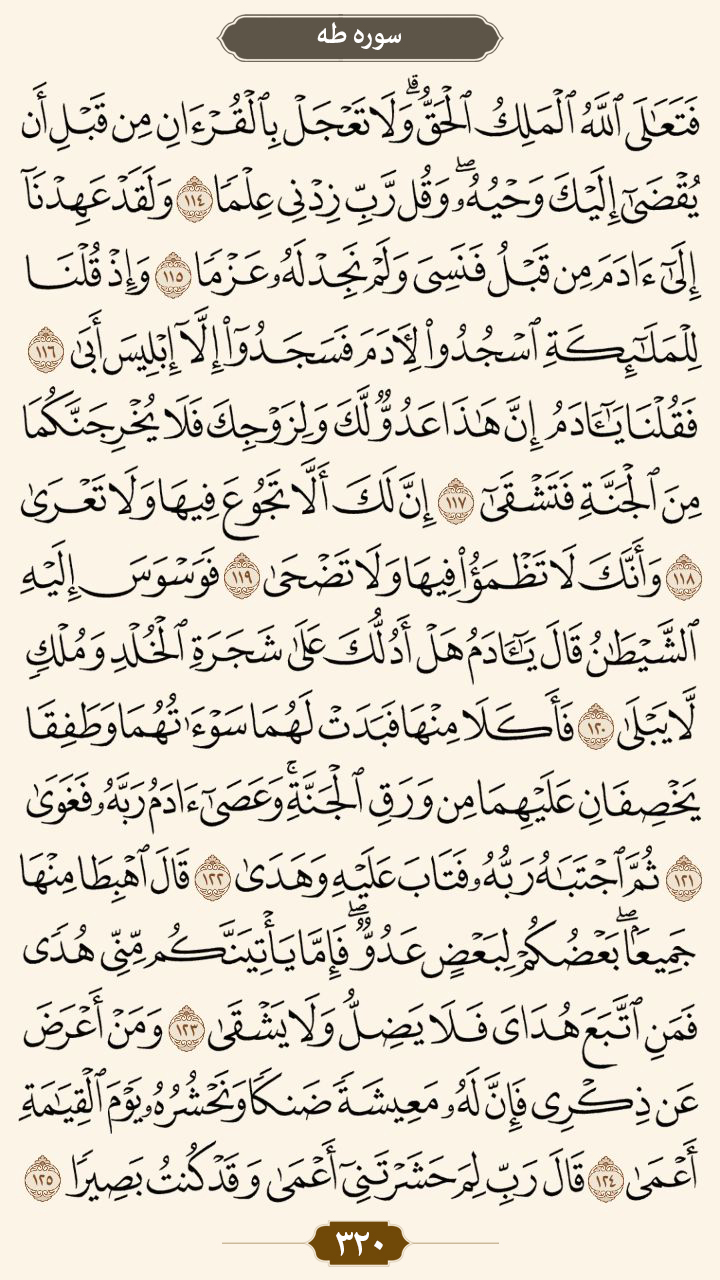 سوره طه
فَتَعَٰلَى ٱللَّهُ ٱلۡمَلِكُ ٱلۡحَقُّۗ وَلَا تَعۡجَلۡ بِٱلۡقُرۡءَانِ مِن قَبۡلِ أَن
يُقۡضَىٰٓ إِلَيۡكَ وَحۡيُهُۥۖ وَقُل رَّبِّ زِدۡنِي عِلۡمٗا ١١٤ وَلَقَدۡ عَهِدۡنَآ
إِلَىٰٓ ءَادَمَ مِن قَبۡلُ فَنَسِيَ وَلَمۡ نَجِدۡ لَهُۥ عَزۡمٗا ١١٥ وَإِذۡ قُلۡنَا
لِلۡمَلَٰٓئِكَةِ ٱسۡجُدُواْ لِأٓدَمَ فَسَجَدُوٓاْ إِلَّآ إِبۡلِيسَ أَبَىٰ ١١٦
فَقُلۡنَا يَٰٓـَٔادَمُ إِنَّ هَٰذَا عَدُوّٞ لَّكَ وَلِزَوۡجِكَ فَلَا يُخۡرِجَنَّكُمَا
مِنَ ٱلۡجَنَّةِ فَتَشۡقَىٰٓ ١١٧ إِنَّ لَكَ أَلَّا تَجُوعَ فِيهَا وَلَا تَعۡرَىٰ
١١٨ وَأَنَّكَ لَا تَظۡمَؤُاْ فِيهَا وَلَا تَضۡحَىٰ ١١٩ فَوَسۡوَسَ إِلَيۡهِ
ٱلشَّيۡطَٰنُ قَالَ يَٰٓـَٔادَمُ هَلۡ أَدُلُّكَ عَلَىٰ شَجَرَةِ ٱلۡخُلۡدِ وَمُلۡكٖ
لَّا يَبۡلَىٰ ١٢٠ فَأَكَلَا مِنۡهَا فَبَدَتۡ لَهُمَا سَوۡءَٰتُهُمَا وَطَفِقَا
يَخۡصِفَانِ عَلَيۡهِمَا مِن وَرَقِ ٱلۡجَنَّةِۚ وَعَصَىٰٓ ءَادَمُ رَبَّهُۥ فَغَوَىٰ
١٢١ ثُمَّ ٱجۡتَبَٰهُ رَبُّهُۥ فَتَابَ عَلَيۡهِ وَهَدَىٰ ١٢٢ قَالَ ٱهۡبِطَا مِنۡهَا
جَمِيعَۢاۖ بَعۡضُكُمۡ لِبَعۡضٍ عَدُوّٞۖ فَإِمَّا يَأۡتِيَنَّكُم مِّنِّي هُدٗى
فَمَنِ ٱتَّبَعَ هُدَايَ فَلَا يَضِلُّ وَلَا يَشۡقَىٰ ١٢٣ وَمَنۡ أَعۡرَضَ
عَن ذِكۡرِي فَإِنَّ لَهُۥ مَعِيشَةٗ ضَنكٗا وَنَحۡشُرُهُۥ يَوۡمَ ٱلۡقِيَٰمَةِ
أَعۡمَىٰ ١٢٤ قَالَ رَبِّ لِمَ حَشَرۡتَنِيٓ أَعۡمَىٰ وَقَدۡ كُنتُ بَصِيرٗا ١٢٥
٣٢٠